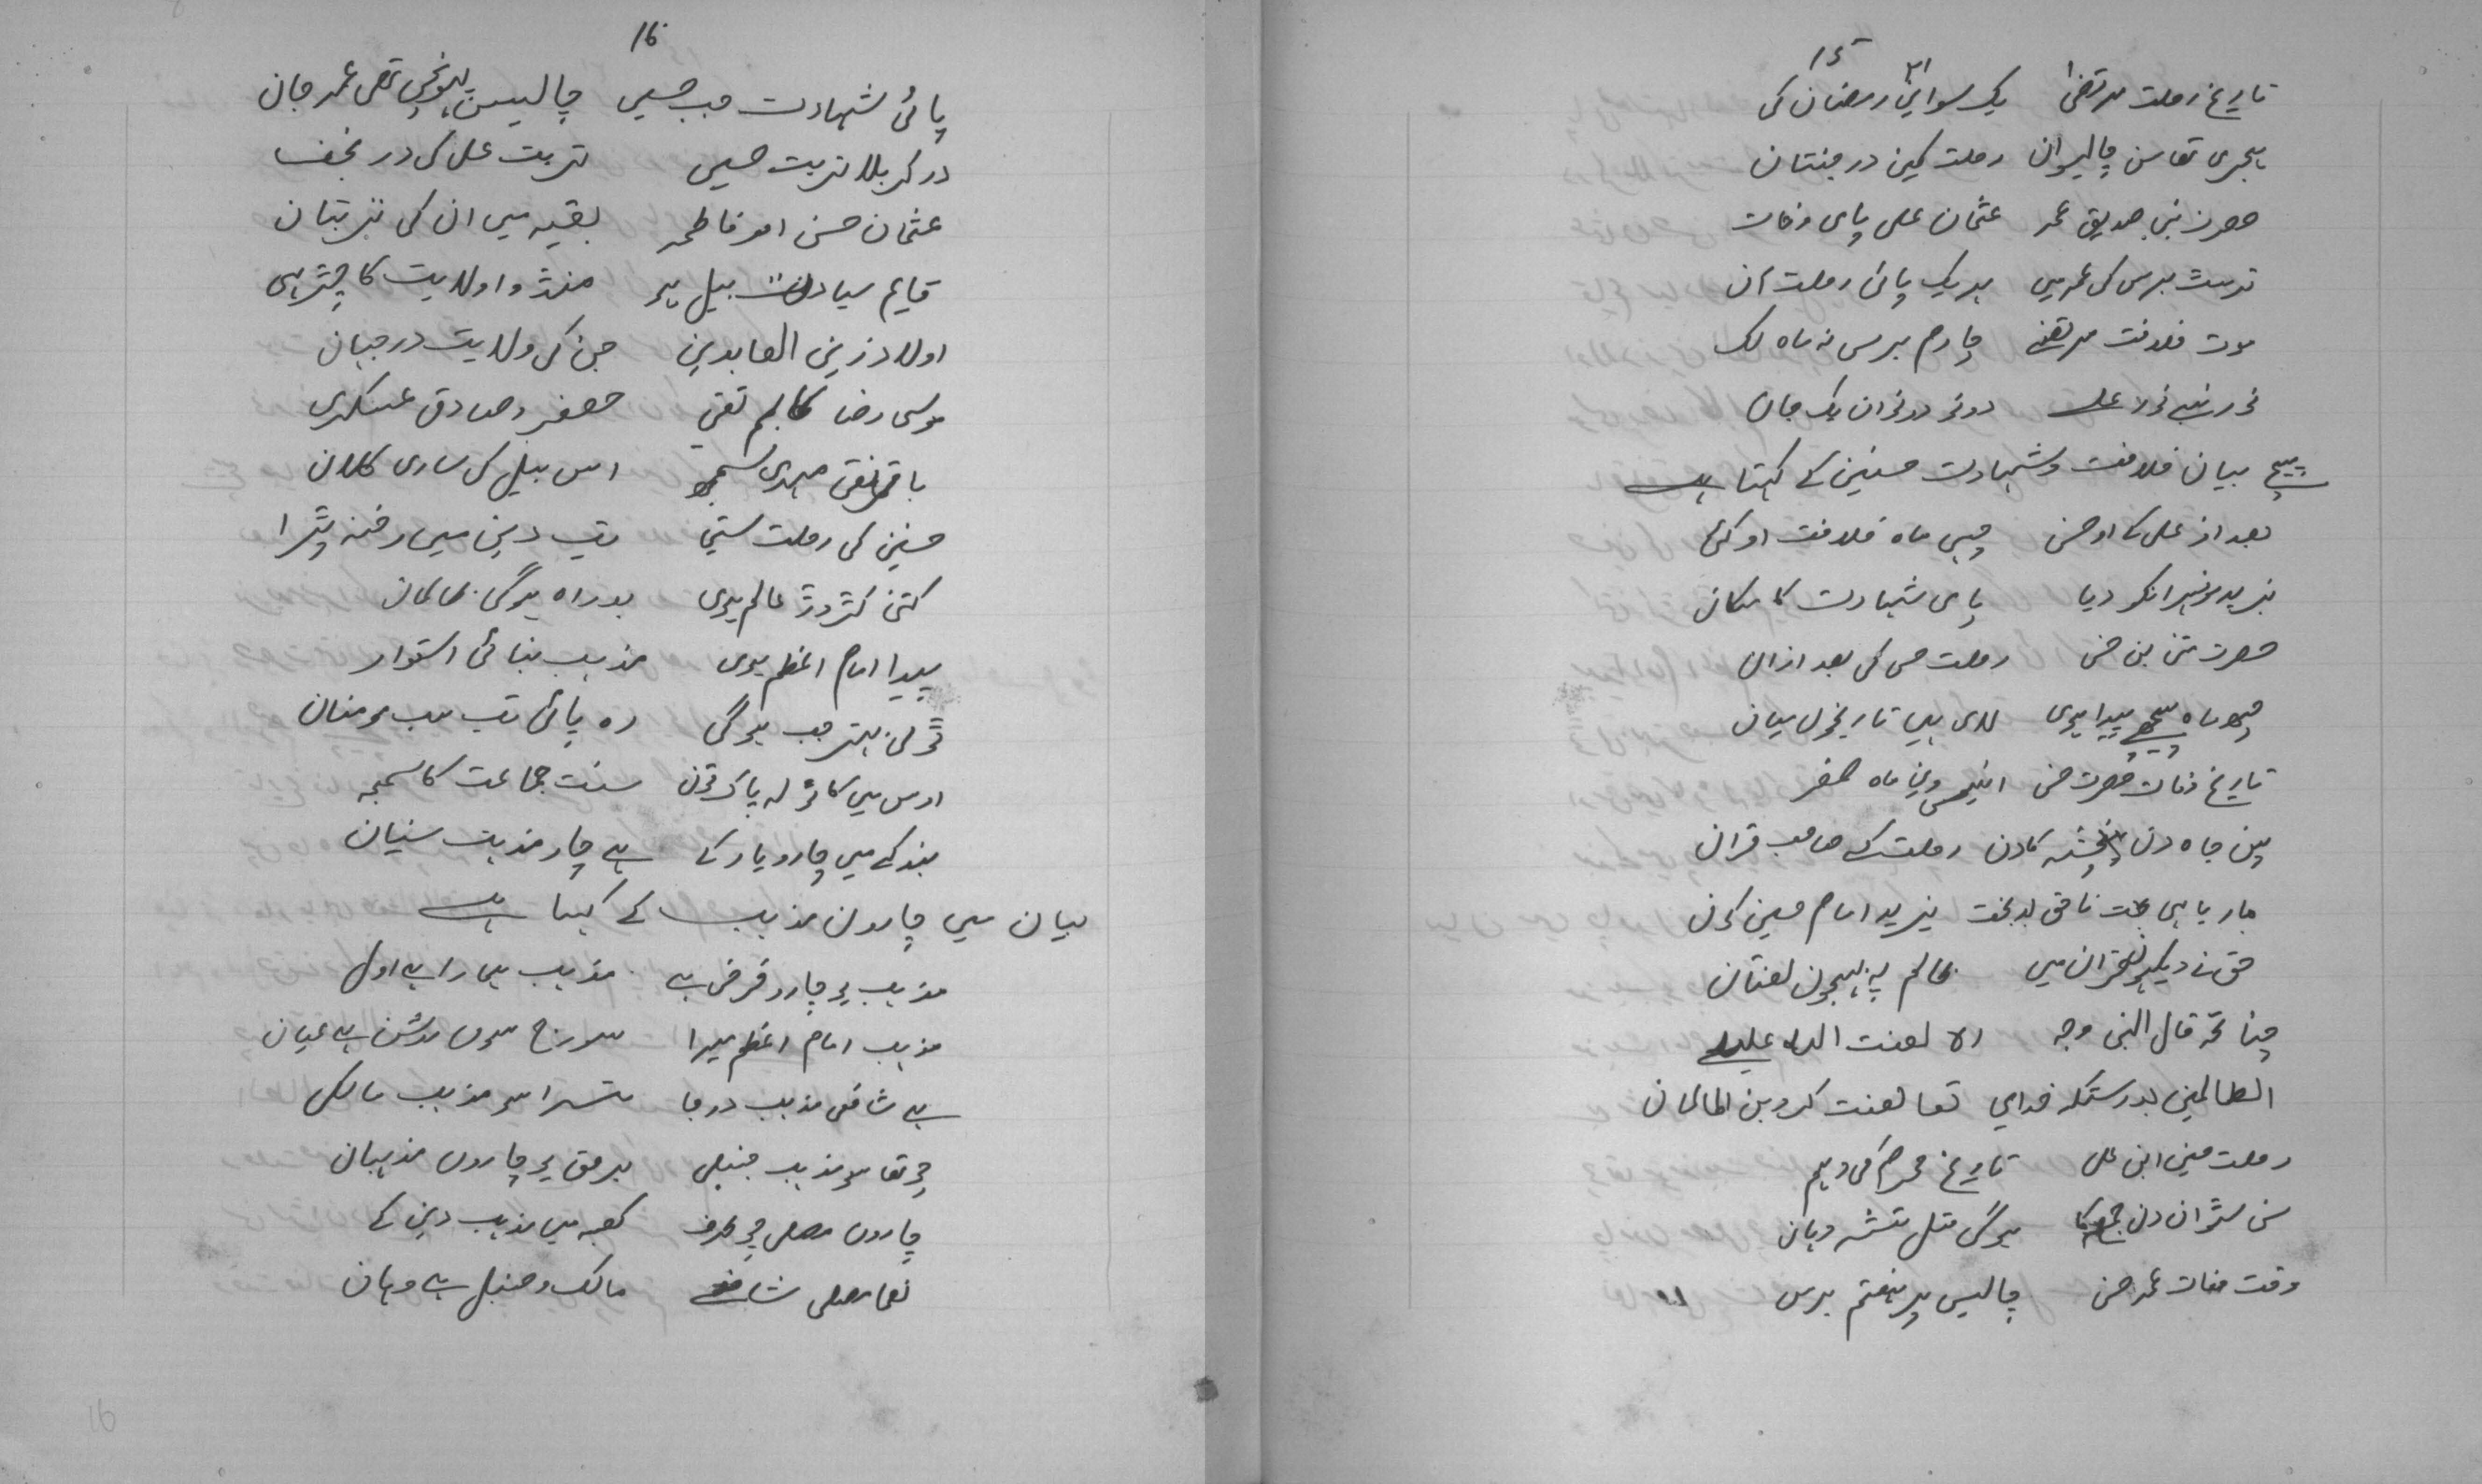 ۱۵
تاریخ رحلت مرتضیٰ یک سوایٔں ۲۱ رمضان کی
ہجری تھا سن چالیسوان رحلت کیں در جنتان
حضرت نبی صدیق عمر عثمان علی پای وفات
ترسٹ برس کی عمر میں ہر یک پائی رحلت آن
مدت خلافت مرتضے چارم برس نہ ماہ لک
نور نبی نور علے دونو دونوان یک جان
پیچ بیان خلافت و شہادت حسنین کے کہتا ہے
بعد از علی کا او حسن چھی ماہ خلافت او کئی
یزید نے زہر انکو دیا پای شہادت کا مکان
حضرت مثنی بن حسن رحلت حسن کی بعد ازاں
چھ ماہ پیچھے پیدا ہوی لای ہیں تاریخوں میان
تاریخ وفات حضرت حسن انیسویں ماہ صفر
پنجشنبہ کا دن رحلت کے صاحب قران
ماریا ہی ناحق بدبخت یزید امام حسین کون
حق نے دیکھو قران میں ظالم پہ بھیجون لعنتان
چنانچہ قال النبی وجہ الا لعنت اللہ علیے
الظالمین بدرستکہ خدای تعا لعنت کردبن ظالمان
رحلت حسین ابن علی تاریخ محرم کی دہم
سن سٹوان دن جمعہ کا ہوگی قتل تشنہ دہان
وقت وفات عمر حسن چالیس پر ہفتم برس
۱۶
پائی شہادت جب حسین چالیس پونچی تھی عمر جان
در کربلا تربت حسین تربت علی کی در نجف
عثمان حسن اور فاطمہ بقیہ میں ان کی تربتان
قایم سیادت بیل ہو منڈوا ولایت کا چڑہی
اولاد زین العابدین جن کی ولایت در جہان
موسی رضا کاظم تقی جعفر و صادق عسکری
باقر نقی مہدی سمجھ اس بیل کی ساری کلان
حسنین کی رحلت ستی تب دین میں رخنہ پڑا
کتنے کڑوڑ عالم ہوی بدراہ ہوگی ظالمان
پیدا امام اعظم ہوی مذہب بنائی استوار
ٹولی بہتر جب ہوگی رہ پائی تب سب مومنان
اوس میں کا ٹولہ پاک توں سنت جماعت کا سمجہ
بندکے میں چارو یار کے ہے چار مذہب سنیان
بیان میں چاروں مذہب کے کہتا ہے
مذہب یو چارو فرض ہے مذہب ہمارا ہے اول
مذہب امام اعظم میرا سورج سوں روشن ہے عیان
ہے شافعی مذہب دوجا تسرا سو مذہب مالکی
چوتھا سو مذہب حنبلی برحق یو چاروں مذہبان
چاروں مصلی چو طرف کعبہ میں مذہب دین کے
نعما مصلی شافعے مالک و حنبل ہے وہان
16